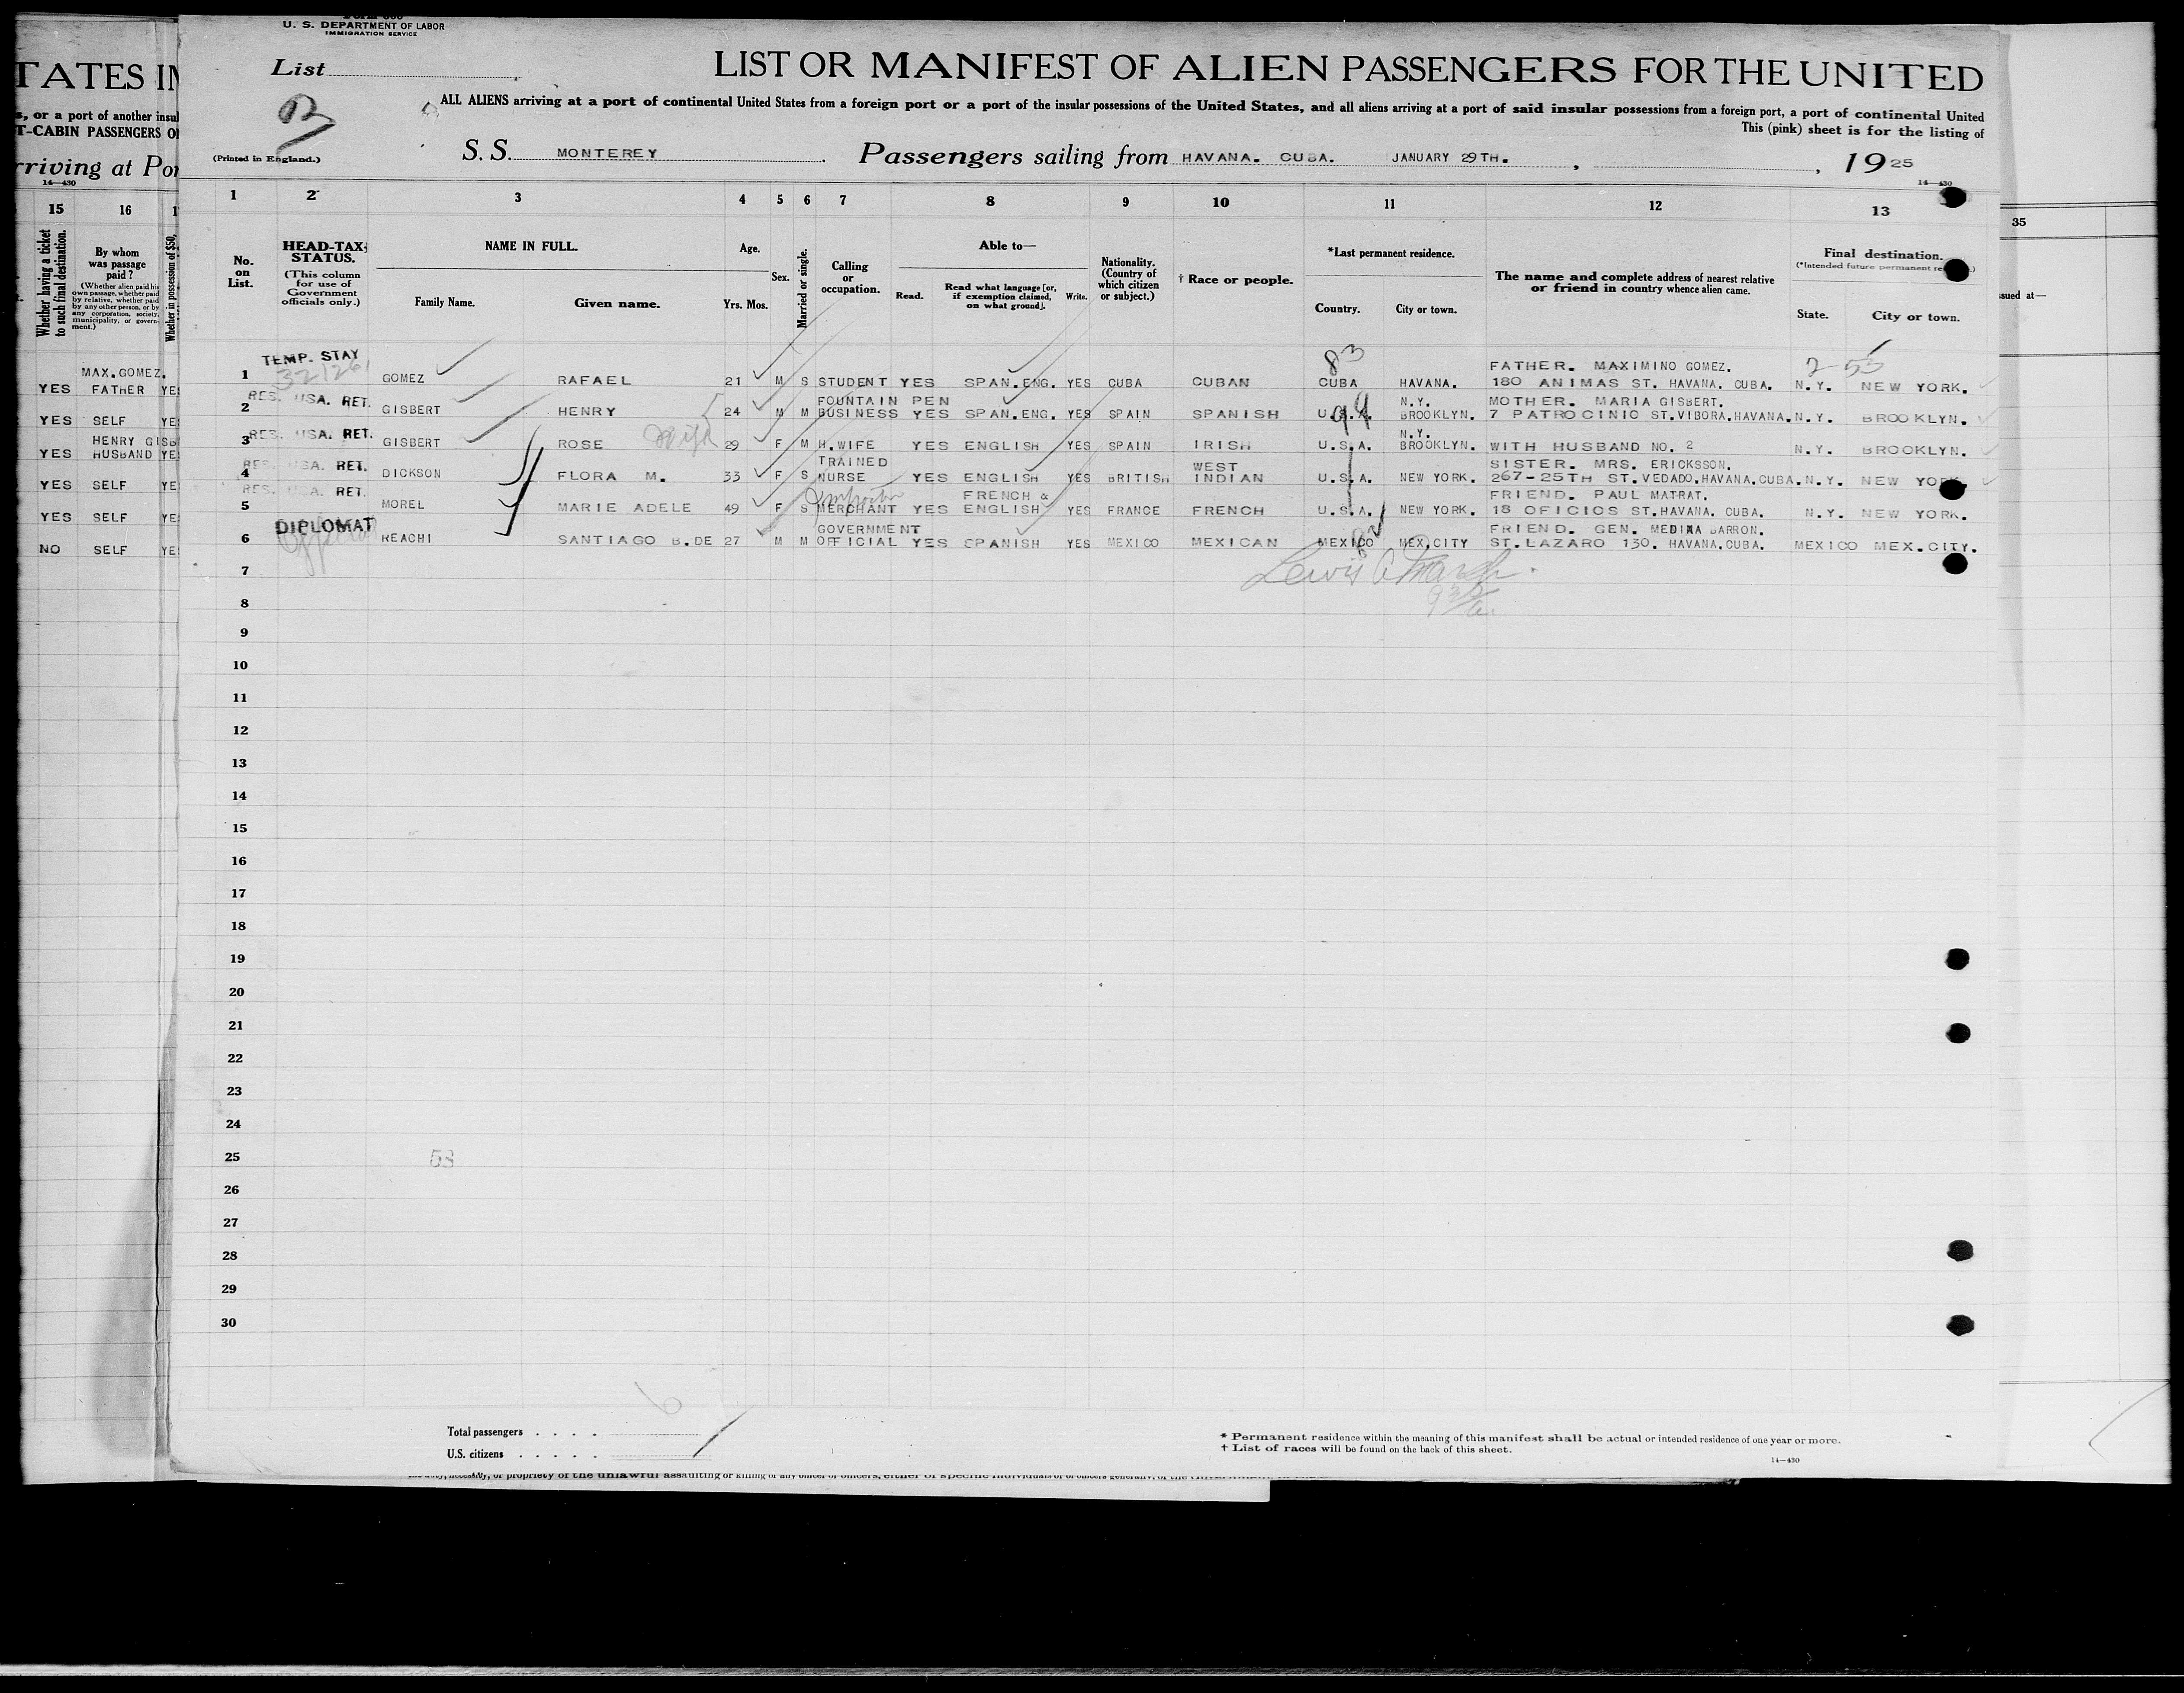 U. S. DEPARTMENT OF LABOR
IMMIGRATION SERVICE
List
B
(Printed in England.)
LIST OR MANIFEST OF ALIEN PASSENGERS FOR THE UNITED
ALL ALIENS arriving at a port of continental United States from a foreign port or a port of the insular possessions of the United States, and all aliens arriving at a port of said insular possessions from a foreign port, a port of continental United
This (pink) sheet is for the listing of
S. S. MONTEREY. Passengers sailing from HAVANA. CUBA. JANUARY 29TH. , , 1925
14—430
TATES IN
s, or a port of another insul
T-CABIN PASSENGERS O
rriving at Por
14—430
15 16 1
Whether having a ticket to such final destination.
By whom was passage paid?
(Whether alien paid his own passage, whether paid by relative, whether paid by any other person, or by any corporation, society, municipality, or government.)
Whether in possession of $50,
1 2 3 4 5 6 7 8 9 10 11 12 13
No. on List.
HEAD-TAX STATUS.
(This column for use of Government officials only.)
NAME IN FULL.
Family Name. Given name.
Age.
Yrs. Mos.
Sex.
Married or single.
Calling or occupation.
Able to—
Read. Read what language [or, if exemption claimed, on what ground]. Write.
Nationality. (Country of which citizen or subject.)
† Race or people.
*Last permanent residence.
Country. City or town.
The name and complete address of nearest relative or friend in country whence alien came.
Final destination.
(*Intended future permanent
State. City or town.
35
sued at—
MAX.GOMEZ.
YES FATHER YE
YES SELF YE
HENRY GISB
YES HUSBAND YE
YES SELF YE
YES SELF YE
NO SELF YE
TEMP. STAY 83 FATHER. MAXIMINO GOMEZ. 2-53
1 GOMEZ RAFAEL 21 M S STUDENT YES SPAN.ENG. YES CUBA CUBAN CUBA HAVANA. 180 ANIMAS ST. HAVANA. CUBA. N.Y. NEW YORK.
RES. USA. RET. FOUNTAIN PEN N.Y. MOTHER. MARIA GISBERT.
2 GISBERT HENRY 24 M M BUSINESS YES SPAN.ENG. YES SPAIN SPANISH U.S.A. 99 BROOKLYN. 7 PATROCINIO ST.VIBORA.HAVANA. N.Y. BROOKLYN.
RES. USA. RET. N.Y.
3 GISBERT ROSE wife 29 F M H.WIFE YES ENGLISH YES SPAIN IRISH U.S.A. BROOKLYN. WITH HUSBAND NO. 2 N.Y. BROOKLYN.
RES. USA. RET. TRAINED WEST SISTER. MRS. ERICKSSON.
4 DICKSON FLORA M. 33 F S NURSE YES ENGLISH YES BRITISH INDIAN U.S.A. NEW YORK. 267-25TH ST.VEDADO.HAVANA.CUBA. N.Y. NEW YORK.
RES. USA. RET. Importer FRENCH & FRIEND. PAUL MATRAT.
5 MOREL MARIE ADELE 49 F S MERCHANT YES ENGLISH YES FRANCE FRENCH U.S.A. NEW YORK. 18 OFICIOS ST.HAVANA. CUBA. N.Y. NEW YORK.
DIPLOMAT GOVERNMENT FRIEND. GEN. MEDINA BARRON.
6 REACHI SANTIAGO B.DE 27 M M OFFICIAL YES SPANISH YES MEXICO MEXICAN MEXICO MEX.CITY ST.LAZARO 130. HAVANA.CUBA. MEXICO MEX.CITY.
7
8
9
10
11
12
13
14
15
16
17
18
19
20
21
22
23
24
25
53
26
27
28
29
30
6
Total passengers . . . .
U.S. citizens . . . . .
* Permanent residence within the meaning of this manifest shall be actual or intended residence of one year or more.
† List of races will be found on the back of this sheet.
14—430